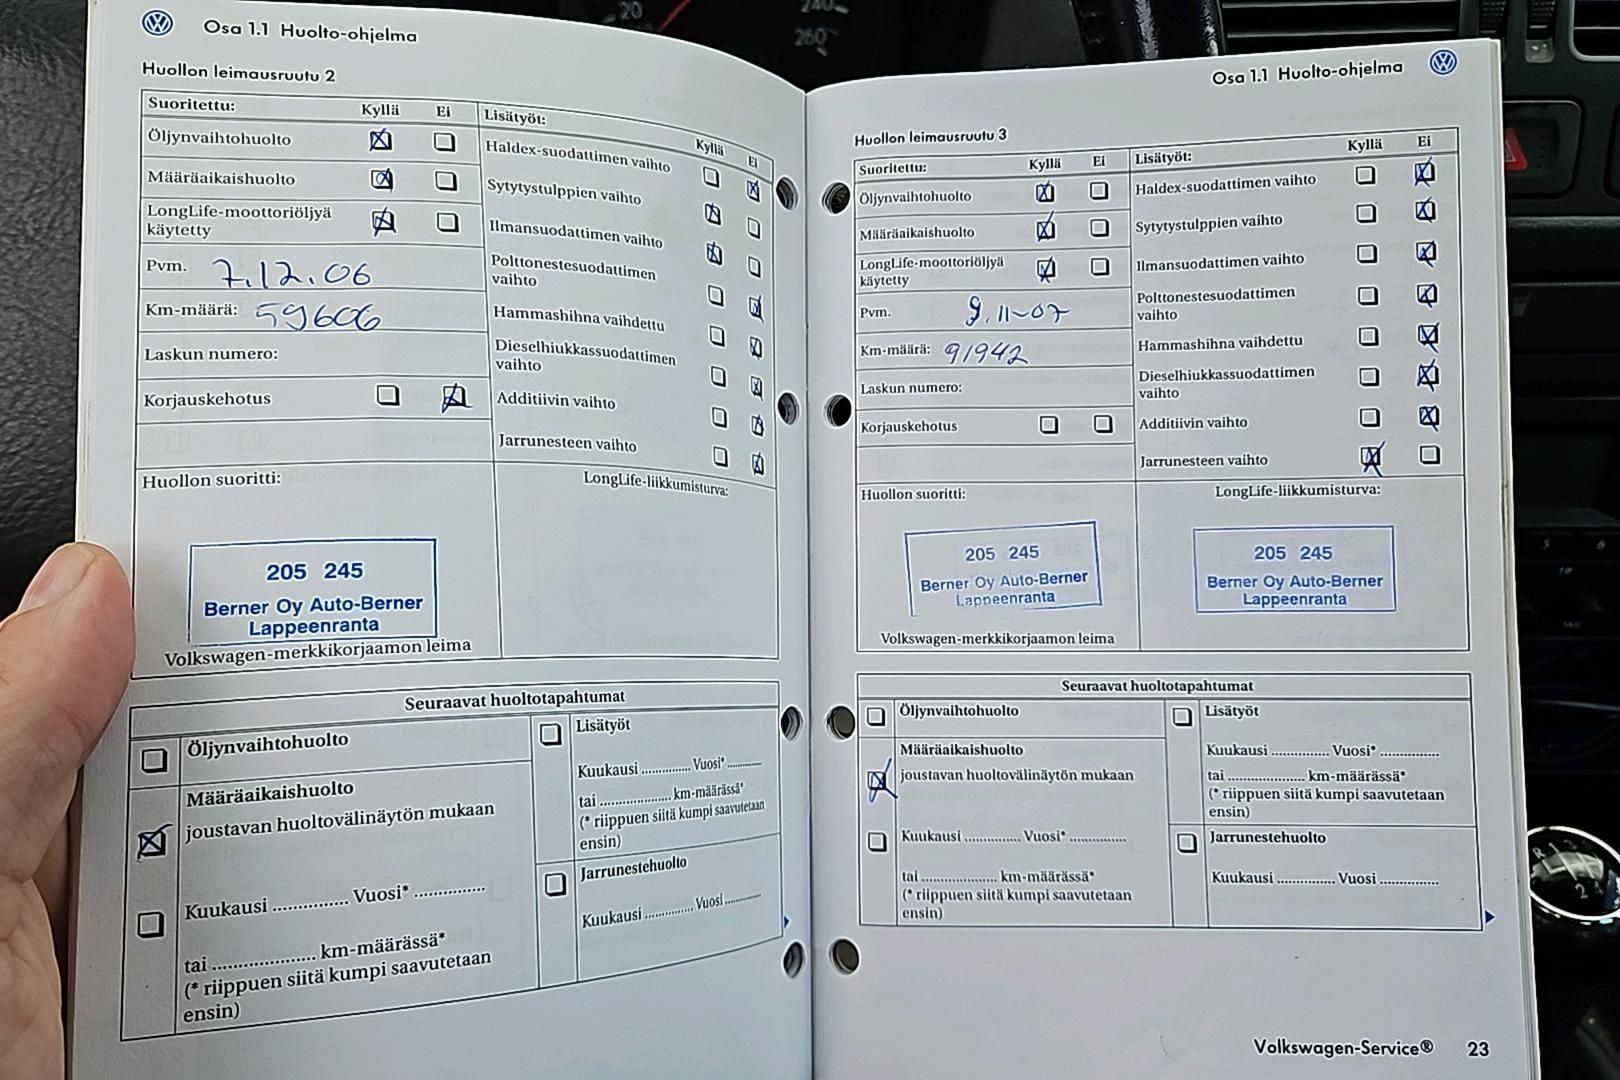 20
240
260
Osa 1.1 Huolto-ohjelma
Huollon leimausruutu 2
Suoritettu: Kyllä Ei
Öljynvaihtohuolto
Määräaikaishuolto
LongLife-moottoriöljyä
käytetty
Pvm. 7.12.06
Km-määrä: 59606
Laskun numero:
Korjauskehotus
Lisätyöt: Kyllä Ei
Haldex-suodattimen vaihto
Sytytystulppien vaihto
Ilmansuodattimen vaihto
Polttonestesuodattimen
vaihto
Hammashihna vaihdettu
Dieselhiukkassuodattimen
vaihto
Additiivin vaihto
Jarrunesteen vaihto
Huollon suoritti:
205 245
Berner Oy Auto-Berner
Lappeenranta
Volkswagen-merkkikorjaamon leima
LongLife-liikkumisturva:
Seuraavat huoltotapahtumat
Öljynvaihtohuolto
Määräaikaishuolto
joustavan huoltovälinäytön mukaan
Kuukausi ............... Vuosi* ..............
tai .................... km-määrässä*
(* riippuen siitä kumpi saavutetaan
ensin)
Lisätyöt
Kuukausi .............. Vuosi* ..........
tai .................... km-määrässä*
(* riippuen siitä kumpi saavutetaan
ensin)
Jarrunestehuolto
Kuukausi .............. Vuosi ..........
Osa 1.1 Huolto-ohjelma
Huollon leimausruutu 3
Suoritettu: Kyllä Ei
Öljynvaihtohuolto
Määräaikaishuolto
LongLife-moottoriöljyä
käytetty
Pvm. 9.11-07
Km-määrä: 91942
Laskun numero:
Korjauskehotus
Lisätyöt: Kyllä Ei
Haldex-suodattimen vaihto
Sytytystulppien vaihto
Ilmansuodattimen vaihto
Polttonestesuodattimen
vaihto
Hammashihna vaihdettu
Dieselhiukkassuodattimen
vaihto
Additiivin vaihto
Jarrunesteen vaihto
Huollon suoritti:
205 245
Berner Oy Auto-Berner
Lappeenranta
Volkswagen-merkkikorjaamon leima
LongLife-liikkumisturva:
205 245
Berner Oy Auto-Berner
Lappeenranta
Seuraavat huoltotapahtumat
Öljynvaihtohuolto
Määräaikaishuolto
joustavan huoltovälinäytön mukaan
Kuukausi ............... Vuosi* ..............
tai .................... km-määrässä*
(* riippuen siitä kumpi saavutetaan
ensin)
Lisätyöt
Kuukausi ............... Vuosi* ..............
tai .................... km-määrässä*
(* riippuen siitä kumpi saavutetaan
ensin)
Jarrunestehuolto
Kuukausi ............... Vuosi ..............
Volkswagen-Service® 23